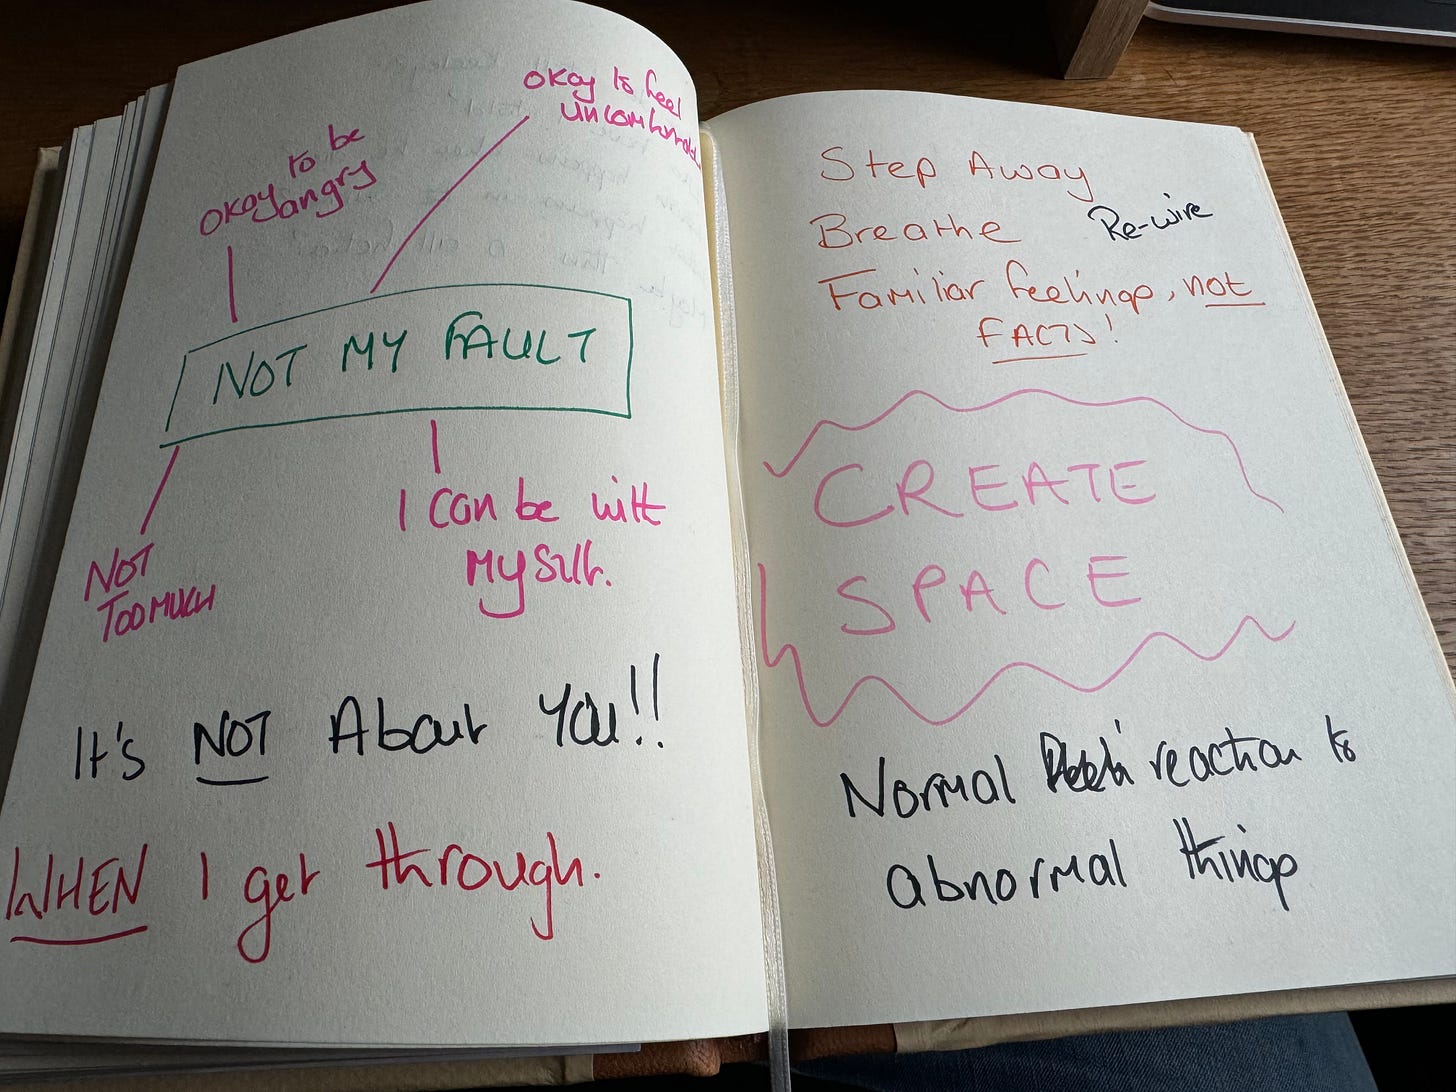 okay to feel
uncomfortable
okay to be
angry
NOT MY FAULT
I can be with
myself.
NOT
TOO MUCH
It's NOT About You!!
WHEN I get through.
Step Away
Breathe
Re-wire
Familiar feelings, not
FACTS!
CREATE
SPACE
Normal reaction to
abnormal things